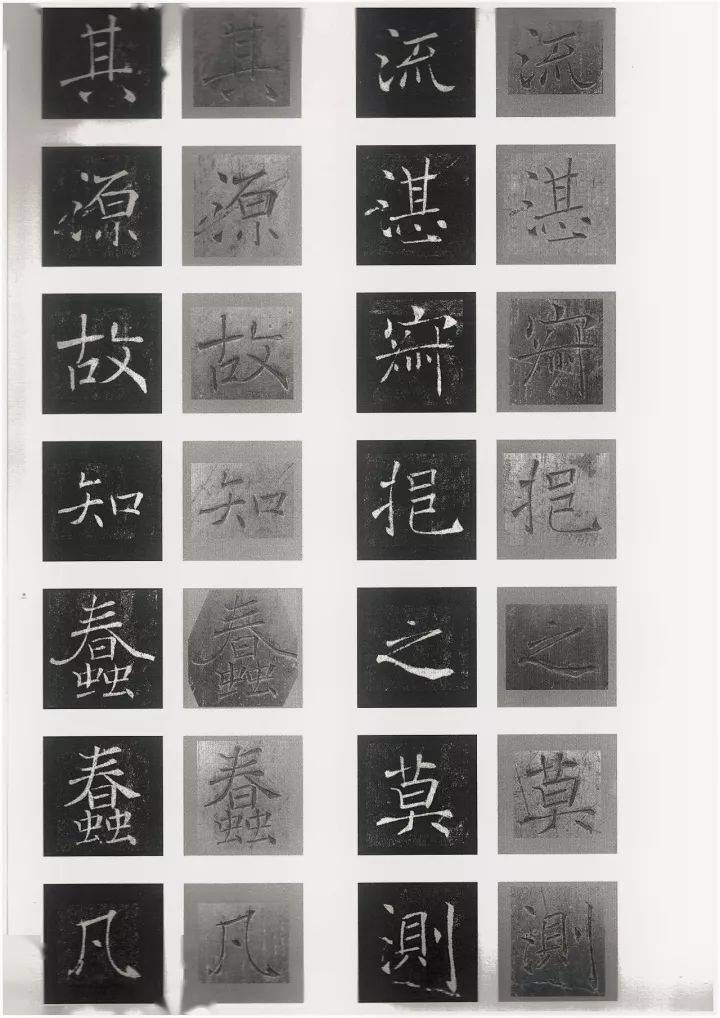 流湛寂挹之莫測
流湛寂挹之莫測
其源故知蠢蠢凡
其源故知蠢蠢凡